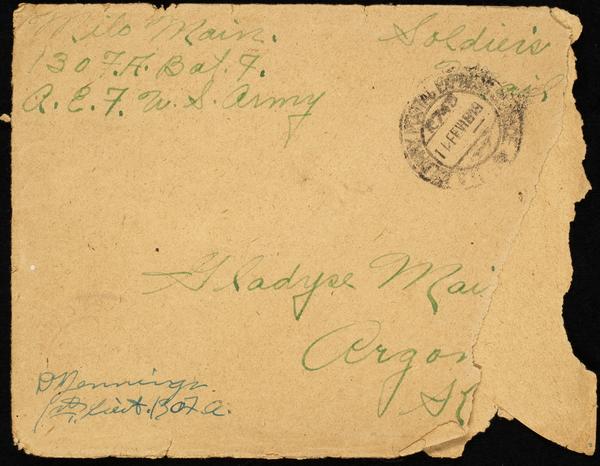 Milo Main.
130 F.A. Bat. F.
A. E. F. U. S. Army
Soldier's
Mail
11 FEV 1919
Gladyse Mai
Argon
1st Lieut. 130 F.A.